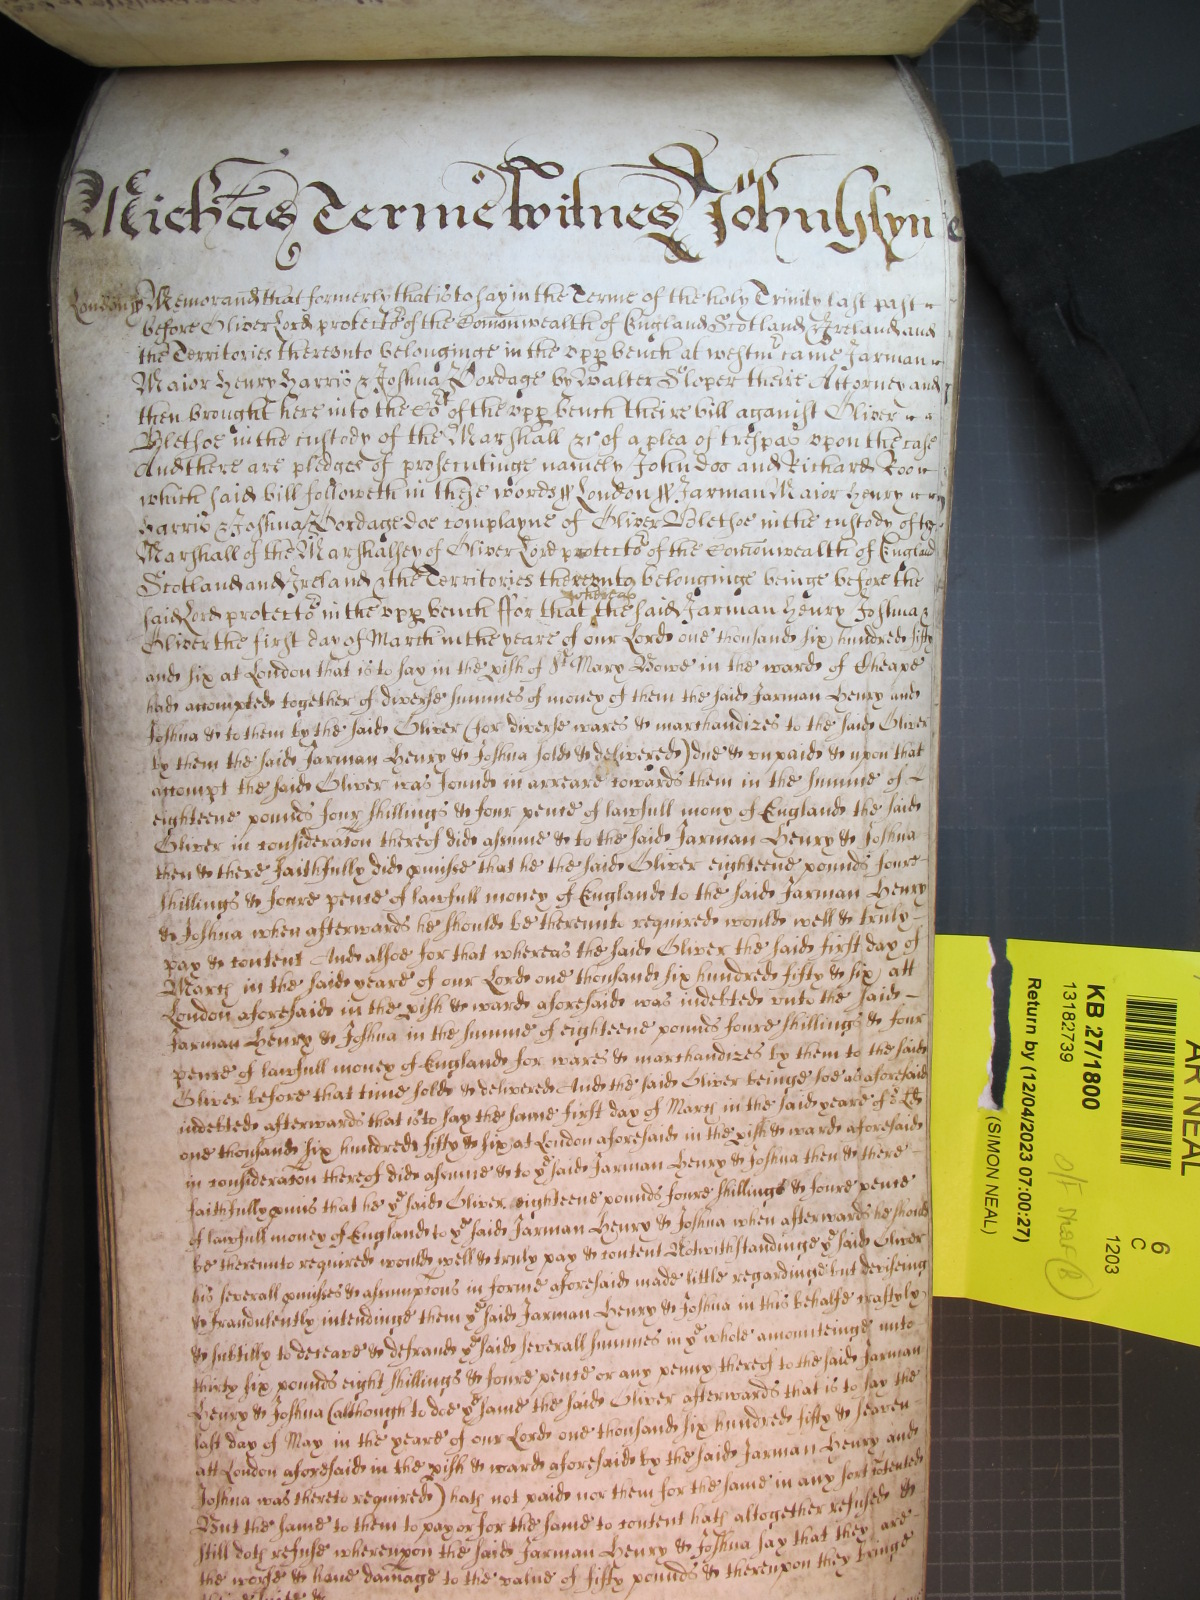 Michas Terme Witnes John Glynne
London ss Memorand that formerly that is to say in the Terme of the holy Trinity last past
before Oliver Lord protector of the Comonwealth of England Scotland & Ireland and
the Territories thereunto belonginge in the upp bench at westmr came Jarman
Maior Henry Harris & Joshua Pordage by Walter Sloper theire Attorney and
then brought here into the Cort of the upp bench theire bill against Oliver
Blethoe in the custody of the Marshall &c of a plea of trespas upon the case
And there are pledges of prosecutinge namely John Doo and Richard Roo
which said bill followeth in these words ss London ss Jarman Maior Henry
Harris & Joshua Pordage doe complayne of Oliver Blethoe in the custody of the
Marshall of the Marshalsey of Oliver Lord protector of the Comonwealth of England
Scotland and Ireland & the Territories thereunto belonginge beinge before the
said Lord protector in the upp bench ffor that whereas the said Jarman Henry Joshua &
Oliver the first day of March in the yeare of our Lord one thousand six hundred fifty
and six at London that is to say in the pish of St Mary Bowe in the ward of Cheape
had accompted together of diverse summes of money of them the said Jarman Henry and
Joshua & to them by the said Oliver (for diverse wares & marchandizes to the said Oliver
by them the said Jarman Henry & Joshua sold & delivered) due & unpaid & upon that
accompt the said Oliver was found in arreare towards them in the summe of
eighteene pounds four shillings & four pence of lawfull mony of England the said
Oliver in consideracon thereof did assume & to the said Jarman Henry & Joshua
then & there faithfully did pmise that he the said Oliver eighteene pounds foure
shillings & foure pence of lawfull money of England to the said Jarman Henry
& Joshua when afterwards he should be thereunto required would well & truly
pay & content And alsoe for that whereas the said Oliver the said first day of
March in the said yeare of our Lord one thousand six hundred fifty & six att
London aforesaid in the pish & ward aforesaid was indetted unto the said
Jarman Henry & Joshua in the summe of eighteene pounds foure shillings & four
pence of lawfull money of England for wares & marchandizes by them to the said
Oliver before that time sold & delivered And the said Oliver beinge soe as aforesaid
indetted afterwards that is to say the same first day of March in the said yeare of or Ld
one thousand six hundred fifty & six at London aforesaid in the pish & ward aforesaid
in consideracon thereof did assume & to ye said Jarman Henry & Joshua then & there
faithfully pmis that he ye said Oliver eighteene pounds foure shillings & foure pence
of lawfull money of England to ye said Jarman Henry & Joshua when afterwards he should
be thereunto required would well & truly pay & content Notwithstandinge ye said Oliver
his severall pmises & assumptions in forme aforesaid made little regardinge but deviseing
& fraudulently intendinge them ye said Jarman Henry & Joshua in this behalfe craftyly
& subtilly to deceave & defraud ye said severall summes in ye whole amounteinge unto
thirty six pounds eight shillings & foure pence or any penny thereof to the said Jarman
Henry & Joshua (although to doe ye same the said Oliver afterwards that is to say the
last day of May in the yeare of our Lord one thousand six hundred fifty & seaven
att London aforesaid in the pish & ward aforesaid by the said Jarman Henry and
Joshua was thereto required) hath not paid nor them for the same in any sort contented
But the same to them to pay or for the same to content hath altogether refused &
still doth refuse whereupon the said Jarman Henry & Joshua say that they are
the worse & have damage to the value of fifty pounds & thereupon they bringe
AR NEAL
KB 27/1800
13182739
Return by (12/04/2023 07:00:27)
(SIMON NEAL)
6
C
1203